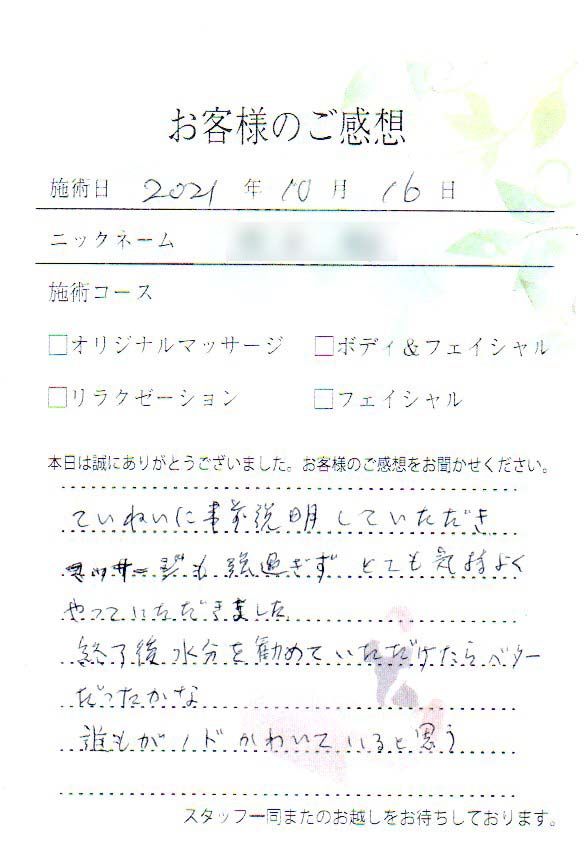 お客様のご感想
施術日 2021 年 10 月 16 日
ニックネーム
施術コース
□オリジナルマッサージ □ボディ&フェイシャル
□リラクゼーション □フェイシャル
本日は誠にありがとうございました。お客様のご感想をお聞かせください。
ていねいに事前説明していただき
マッサージも強過ぎず とても気持よく
やっていただきました
終了後水分を勧めていただけたらベター
だったかな
誰もがノドかわいていると思う
スタッフ一同またのお越しをお待ちしております。